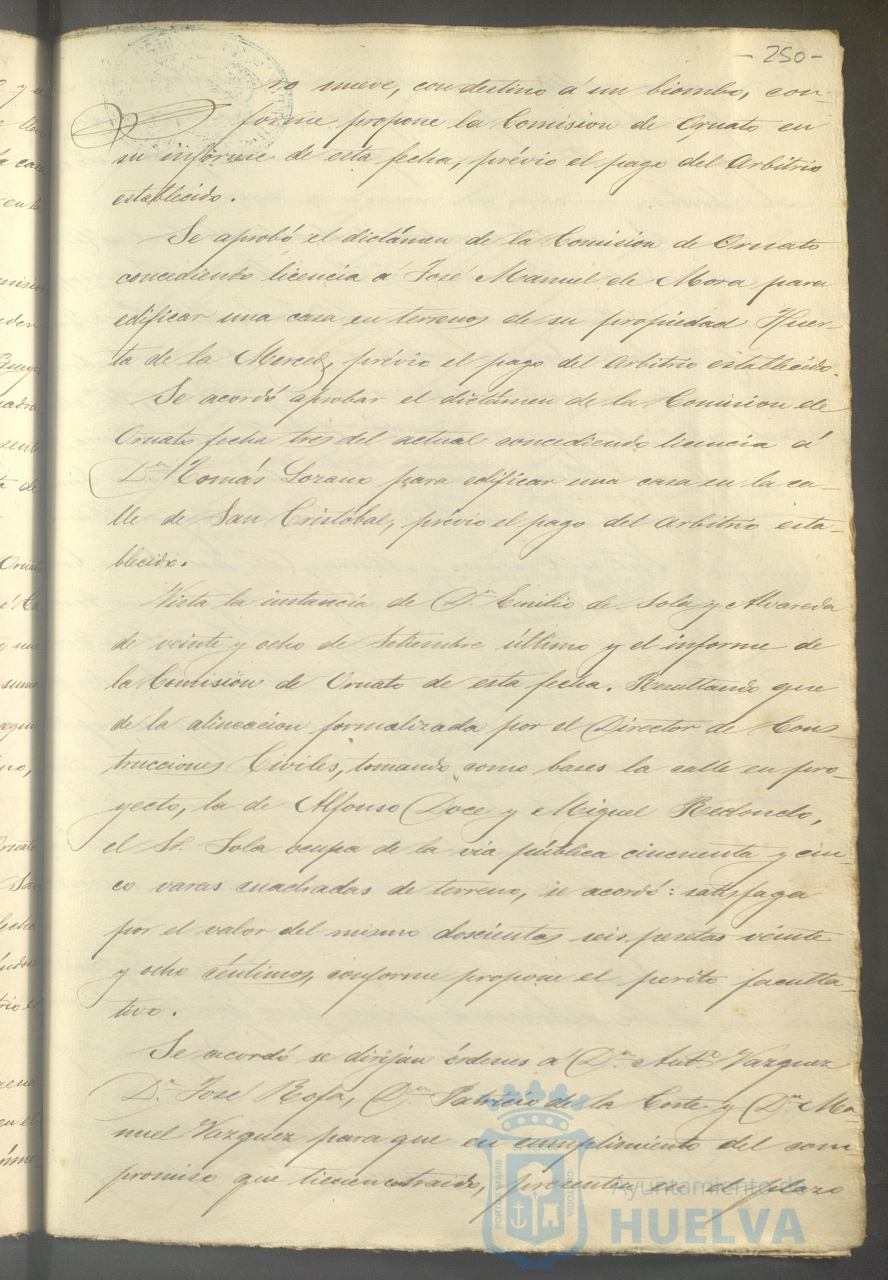 - 250 -
ro nueve, con destino á un biombo, con-
forme propone la Comision de Ornato en
su informe de esta fecha, prévio el pago del arbitrio
establecido.
Se aprobó el dictámen de la Comision de Ornato
concediendo licencia á José Manuel de Mora para
edificar una casa en terrenos de su propiedad Huer-
ta de la Merced, prévio el pago del arbitrio establecido.
Se acordó aprobar el dictámen de la Comision de
Ornato fecha tres del actual concediendo licencia á
Dn. Tomás Lozano para edificar una casa en la ca-
lle de San Cristobal, prévio el pago del arbitrio esta-
blecido.
Vista la instancia de Dn. Emilio de Sola y Alvareda
de veinte y ocho de Setiembre último y el informe de
la Comision de Ornato de esta fecha. Resultando que
de la alineacion formalizada por el Director de Cons-
trucciones Civiles, tomando como bases la calle en pro-
yecto, la de Alfonso Doce y Miguel Redondo,
el Sr. Sola ocupa de la via pública cincuenta y cin-
co varas cuadradas de terreno, se acordó: satisfaga
por el valor del mismo doscientas seis pesetas veinte
y ocho céntimos, conforme propone el perito faculta-
tivo.
Se acordó se dirijan órdenes á Dn. Antº Vazquez
Dn. José Rofa, Dn. Patricio de la Corte y Dn. Ma-
nuel Vazquez para que en cumplimiento del com
promiso que tienen contraido, presenten en el plazo
PORTUS MARIS
ET TERRAE
CUSTODIA
Ayuntamiento de
HUELVA